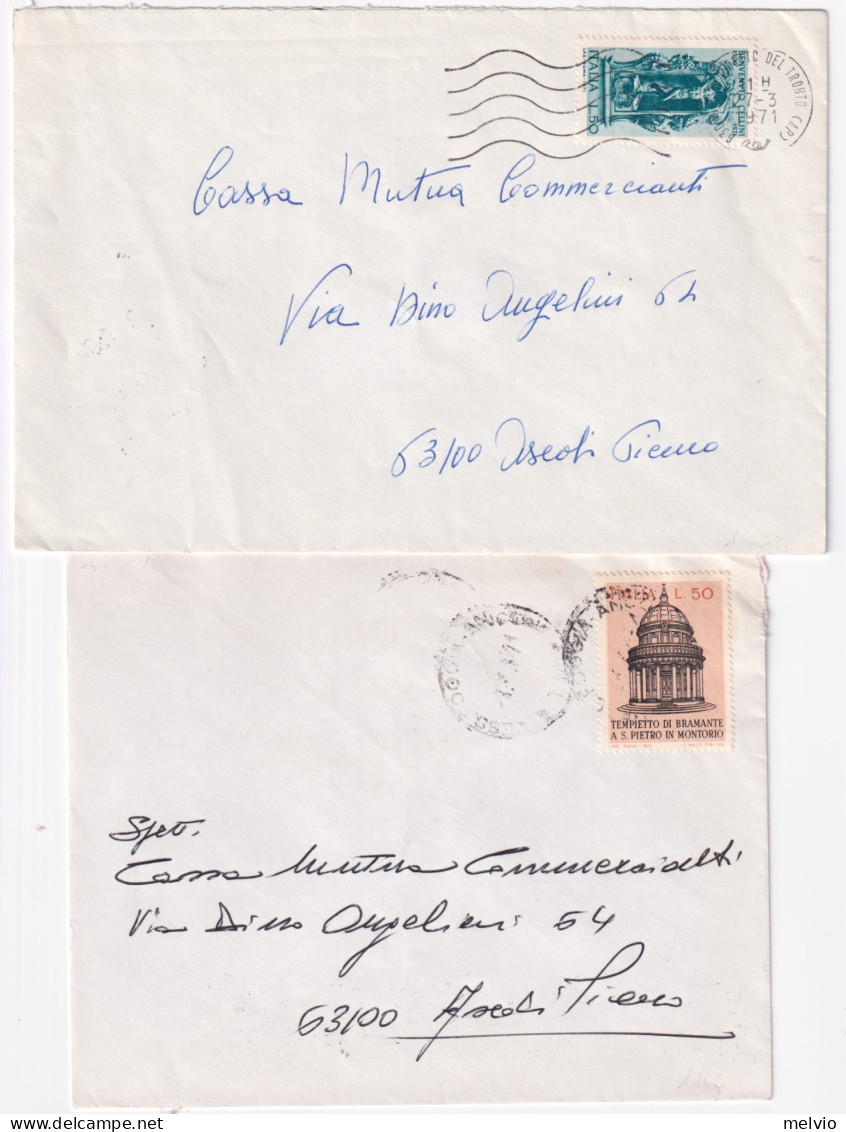 ITALIA L.50
BENVENUTO CELLINI
DEL TRONTO (AP)
1971
Cassa Mutua Commercianti
Via Dino Angelini 64
63100 Ascoli Piceno
ITALIA L. 50
TEMPIETTO DI BRAMANTE
A S. PIETRO IN MONTORIO
Spett.
Cassa Mutua Commercianti
Via Dino Angelini 54
63100 Ascoli Piceno
melvio